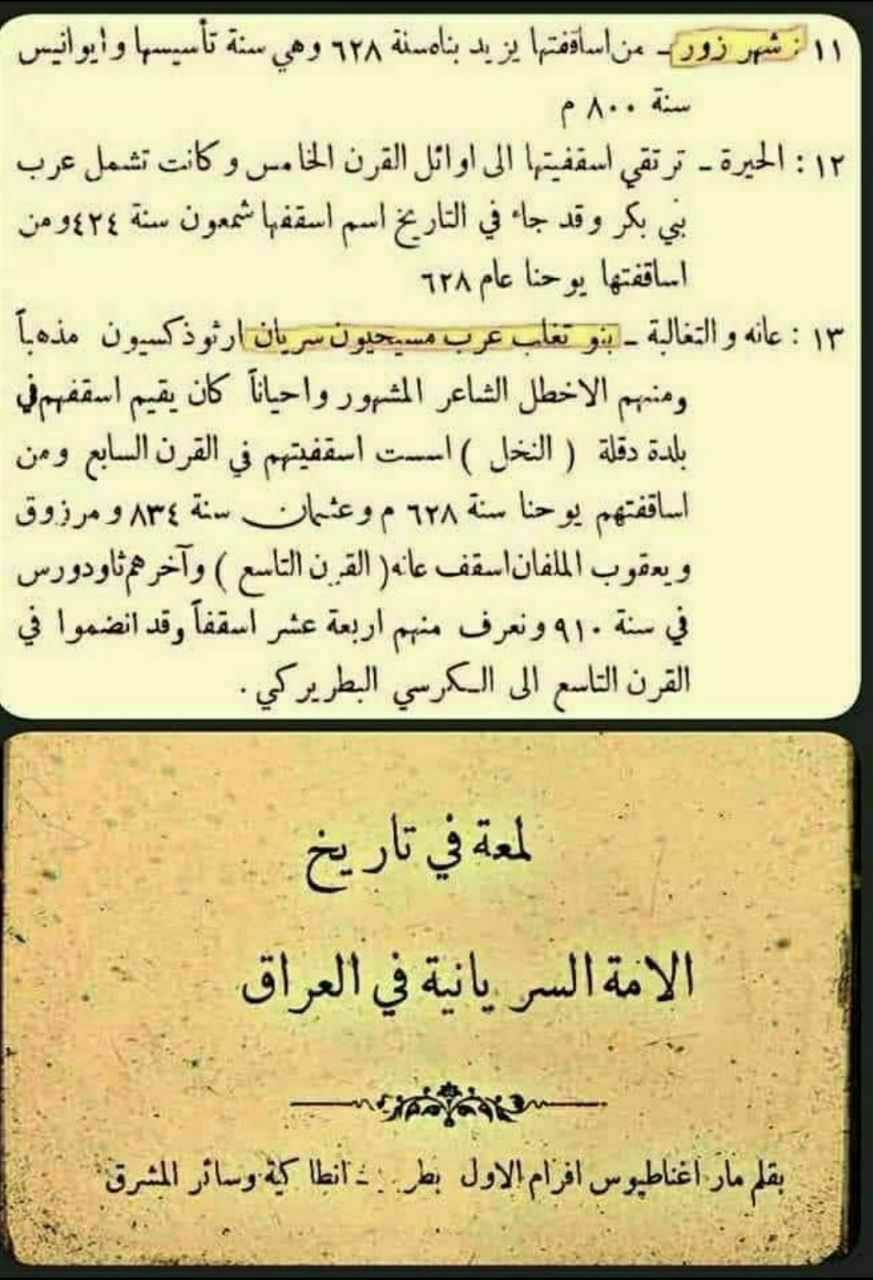 ١١ : شهر زور ـ من اساقفتها يزيد بناه سنة ٦٢٨ وهي سنة تأسيسها وايوانيس
سنة ٨٠٠ م
١٢ : الحيرة ـ ترتقي اسقفيتها الى اوائل القرن الخامس وكانت تشمل عرب
بني بكر وقد جاء في التاريخ اسم اسقفها شمعون سنة ٤٢٤ ومن
اساقفتها يوحنا عام ٦٢٨
١٣ : عانه والتغالبة ـ بنو تغلب عرب مسيحيون سريان ارثوذكسيون مذهباً
ومنهم الاخطل الشاعر المشهور واحياناً كان يقيم اسقفهم في
بلدة دقلة ( النخل ) اسست اسقفيتهم في القرن السابع ومن
اساقفتهم يوحنا سنة ٦٢٨ م وعثمان سنة ٨٣٤ ومرزوق
ويعقوب الملفان اسقف عانه ( القرن التاسع ) وآخرهم ثاودورس
في سنة ٩١٠ ونعرف منهم اربعة عشر اسقفاً وقد انضموا في
القرن التاسع الى الكرسي البطريركي .
لمعة في تاريخ
الامة السريانية في العراق
بقلم مار اغناطيوس افرام الاول انطاكية وسائر المشرق